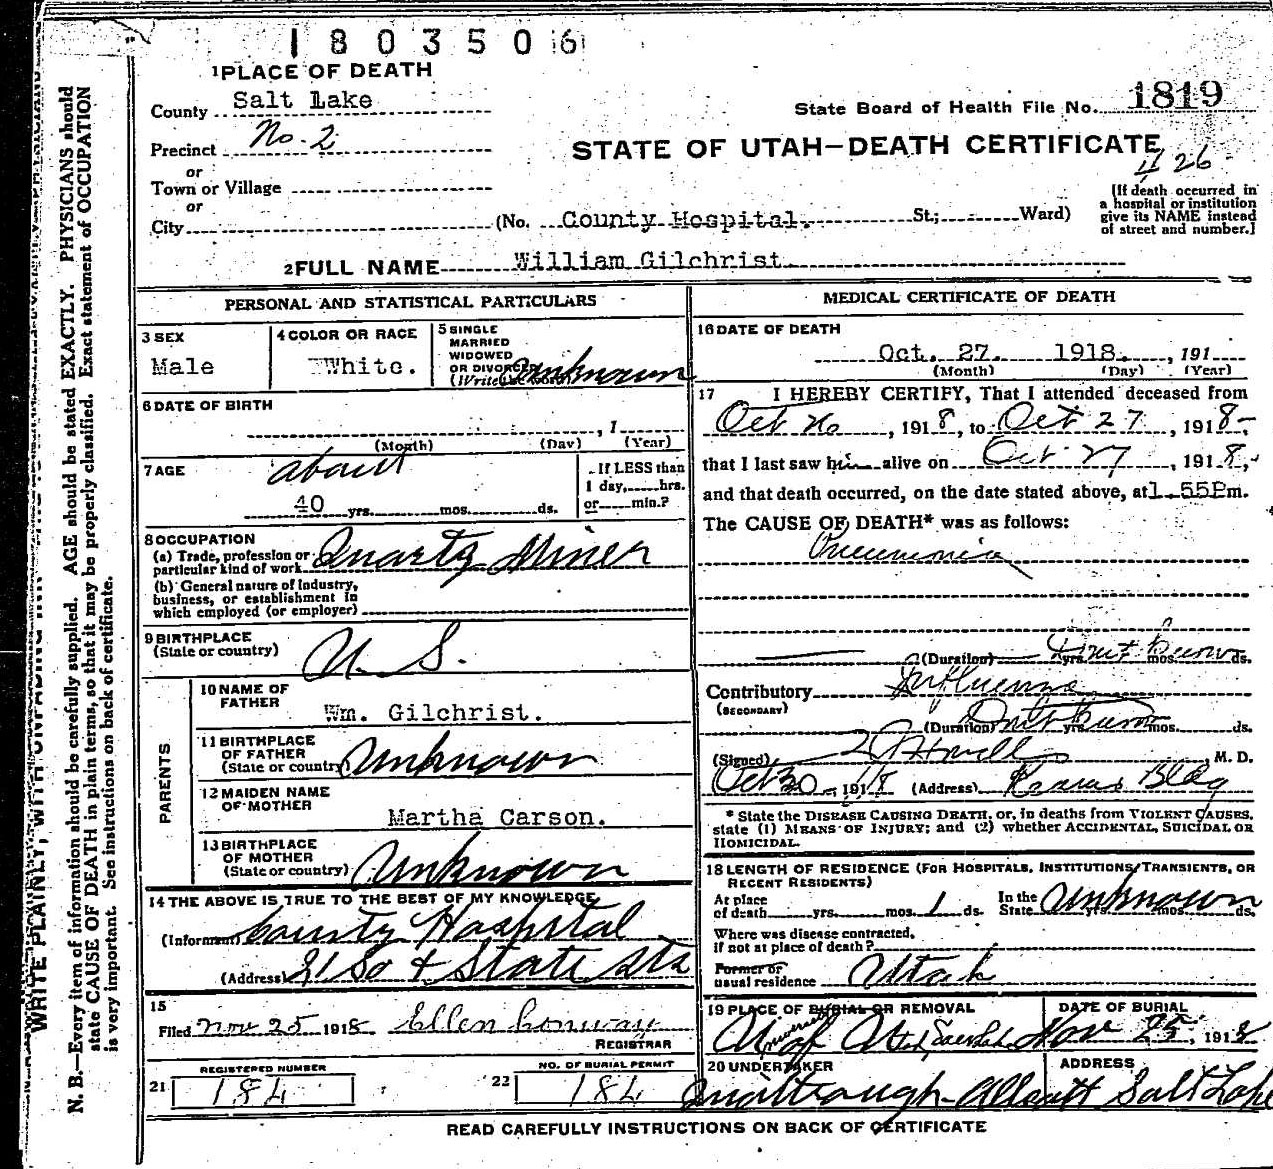 1803506
1 PLACE OF DEATH
County Salt Lake
State Board of Health File No. 1819
Precinct No. 2
STATE OF UTAH—DEATH CERTIFICATE
426
or
Town or Village
or
City (No. County Hospital. St.; Ward)
(If death occurred in
a hospital or institution
give its NAME instead
of street and number.]
2 FULL NAME William Gilchrist.
PERSONAL AND STATISTICAL PARTICULARS
3 SEX
Male
4 COLOR OR RACE
White.
5 SINGLE
MARRIED
WIDOWED
OR DIVORCED
(Write the word)
unknown
6 DATE OF BIRTH
, 1
(Month) (Day) (Year)
7 AGE
about
40 yrs. mos. ds.
If LESS than
1 day, hrs.
or min.?
8 OCCUPATION
(a) Trade, profession or
particular kind of work Quartz Miner
(b) General nature of Industry,
business, or establishment in
which employed (or employer)
9 BIRTHPLACE
(State or country) U. S.
PARENTS
10 NAME OF
FATHER
Wm. Gilchrist.
11 BIRTHPLACE
OF FATHER
(State or country) Unknown
12 MAIDEN NAME
OF MOTHER
Martha Carson.
13 BIRTHPLACE
OF MOTHER
(State or country) Unknown
14 THE ABOVE IS TRUE TO THE BEST OF MY KNOWLEDGE
(Informant) County Hospital
(Address) 21 So & State Sts
15
Filed Nov 25 1918 Ellen Conway
REGISTRAR
REGISTERED NUMBER
21 184
NO. OF BURIAL PERMIT
22 184
MEDICAL CERTIFICATE OF DEATH
16 DATE OF DEATH
Oct. 27. 1918. , 191
(Month) (Day) (Year)
17 I HEREBY CERTIFY, That I attended deceased from
Oct 26, 1918, to Oct 27, 1918-
that I last saw him alive on Oct-27, 1918,
and that death occurred, on the date stated above, at 1.55P m.
The CAUSE OF DEATH* was as follows:
Pneumonia
(Duration) Don't Know yrs. mos. ds.
Contributory Influenza
(SECONDARY)
(Duration) Don't Know yrs. mos. ds.
(Signed) M. D.
Oct 30, 1918 (Address) Kearns Bldg
* State the DISEASE CAUSING DEATH, or, in deaths from VIOLENT CAUSES,
state (1) MEANS OF INJURY; and (2) whether ACCIDENTAL, SUICIDAL OR
HOMICIDAL.
18 LENGTH OF RESIDENCE (FOR HOSPITALS, INSTITUTIONS, TRANSIENTS, OR
RECENT RESIDENTS)
At place
of death yrs. mos. 1 ds.
In the
State Unknown yrs. mos. ds.
Where was disease contracted,
if not at place of death?
Former or
usual residence Utah
19 PLACE OF BURIAL OR REMOVAL
University of Utah, Salt Lake
DATE OF BURIAL
Nov 25, 1918
20 UNDERTAKER
ADDRESS
Salt Lake
READ CAREFULLY INSTRUCTIONS ON BACK OF CERTIFICATE
WRITE PLAINLY, WITH UNFADING INK
N. B.—Every item of information should be carefully supplied. AGE should be stated EXACTLY. PHYSICIANS should
state CAUSE OF DEATH in plain terms, so that it may be properly classified. Exact statement of OCCUPATION
is very important. See instructions on back of certificate.